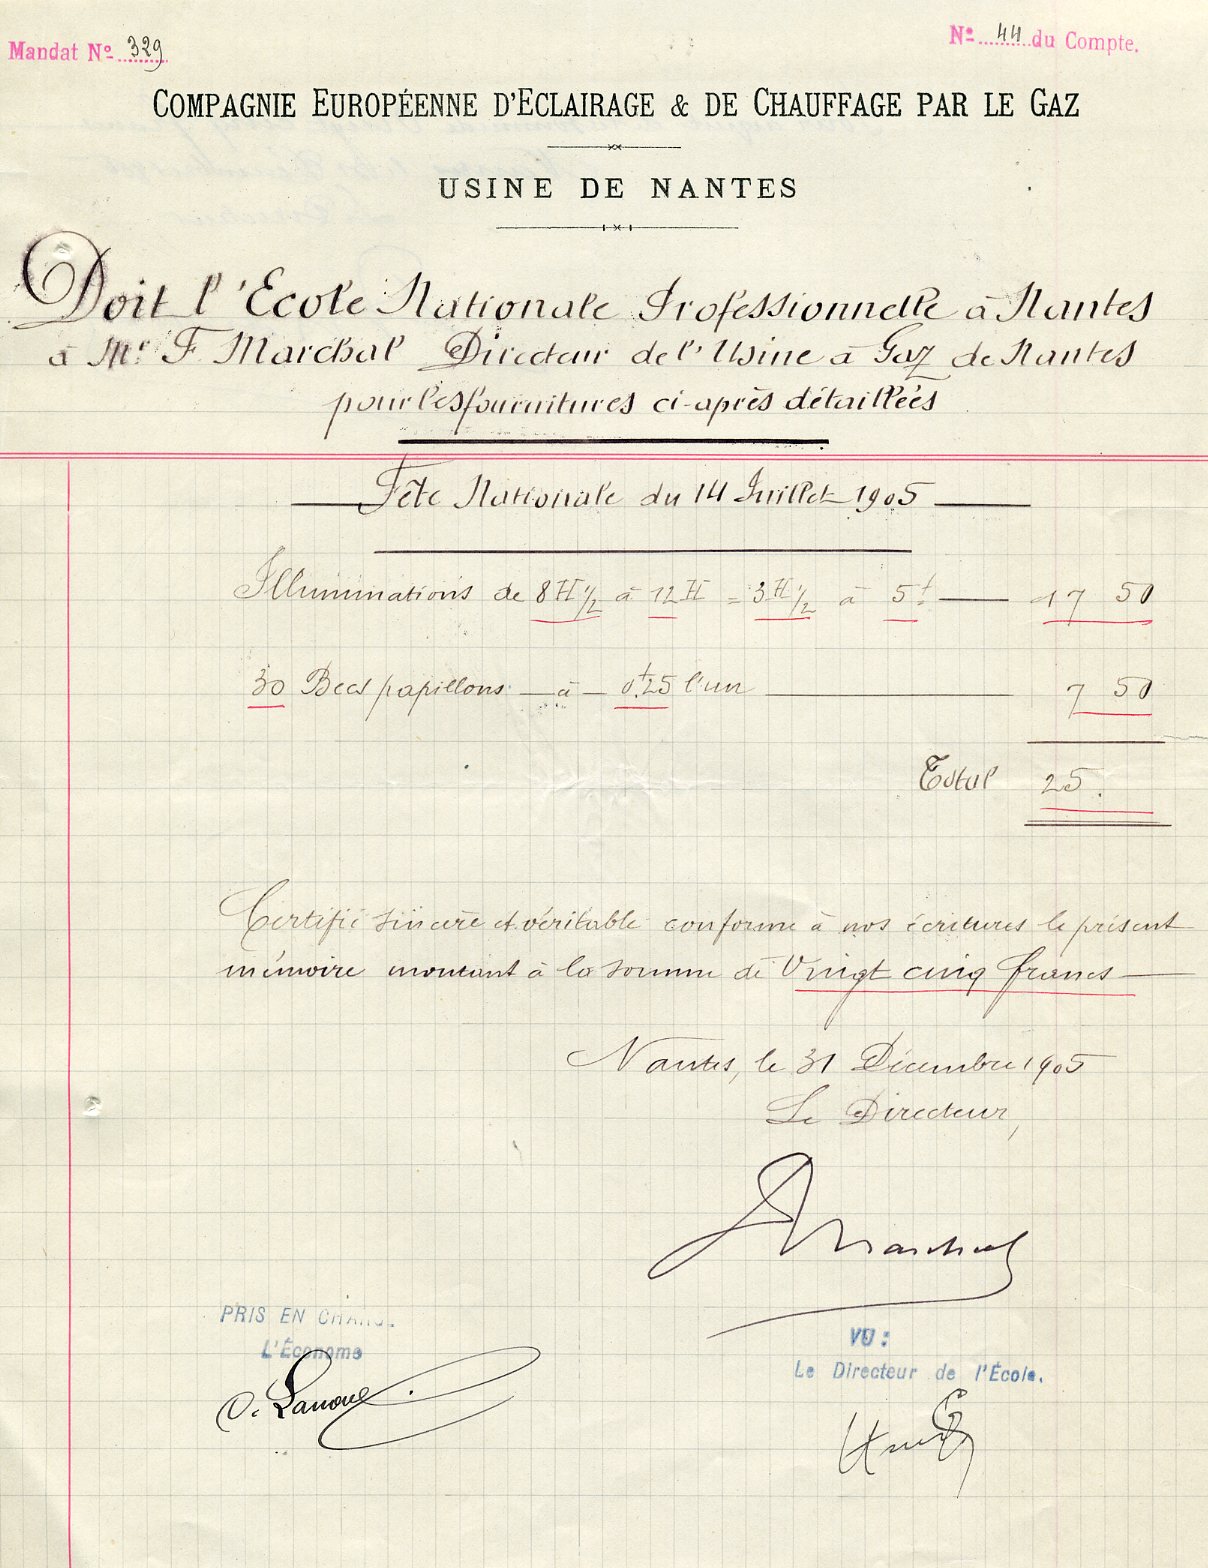 Mandat Nº 329
Nº 44 du Compte.
COMPAGNIE EUROPÉENNE D'ECLAIRAGE & DE CHAUFFAGE PAR LE GAZ
USINE DE NANTES
Doit l'Ecole Nationale Professionnelle à Nantes
à Mr F. Marchal Directeur de l'Usine à Gaz de Nantes
pour les fournitures ci-après détaillées
Fête Nationale du 14 Juillet 1905
Illuminations de 8H1/2 à 12H = 3H1/2 à 5f 17 50
30 Becs papillons à 0f.25 l'un 7 50
Total 25.
Certifié sincère et véritable conforme à nos écritures le présent
mémoire montant à la somme de Vingt cinq francs
Nantes, le 31 Décembre 1905
Le Directeur,
Marchal
PRIS EN CHARGE
L'Économe
VU :
Le Directeur de l'École.